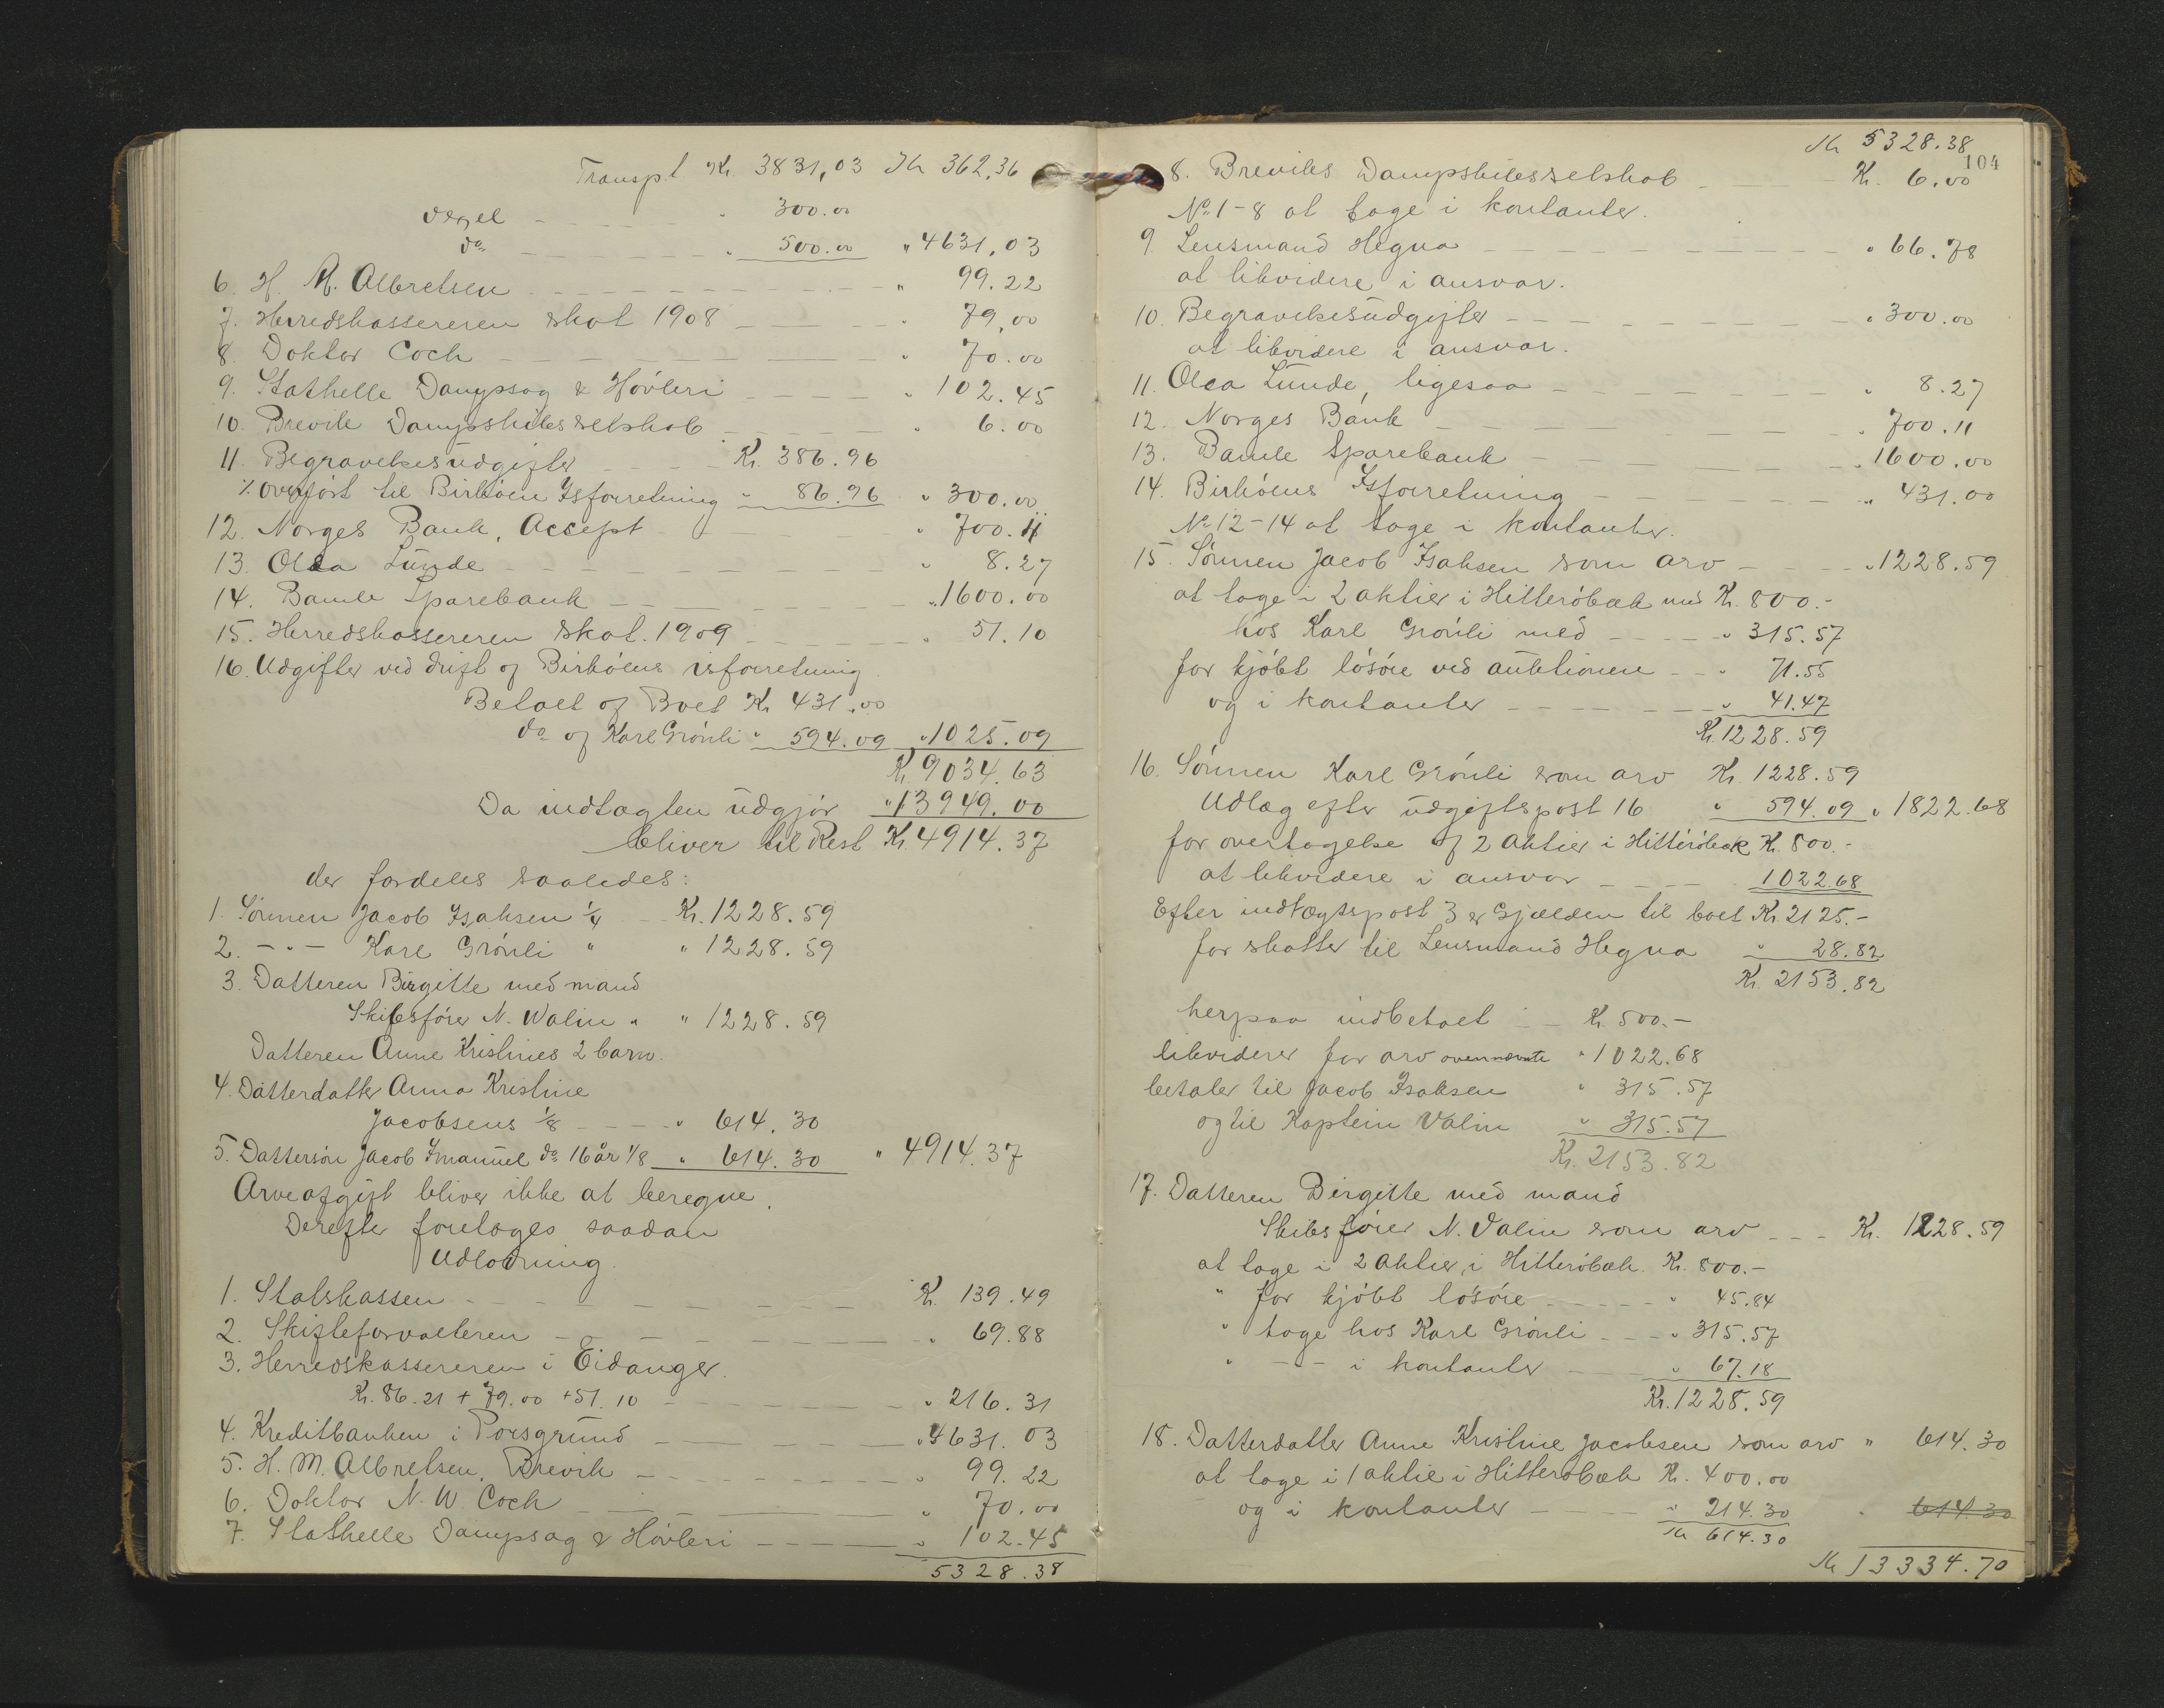 Transpt Kr. 3831,03 Kr 362,36
Vexel - " 300.00
do - - - " 500.00 " 4631,03
6. H. M. Albretsen - - - " 99.22
7. Herredskassereren skat 1908 - - - " 79,00
8. Doktor Coch - - - " 70.00
9. Stathelle Dampsag & Høvleri - - - " 102.45
10. Brevik Dampskibsselskab - - - " 6.00
11. Begravelsesudgifter - - - Kr. 386.96
% overført til Birkóens Isforretning " 86.96 " 300.00
12. Norges Bank, Accept - - - " 700.11
13. Olea Lunde - - - " 8.27
14. Bamle Sparebank - - - " 1600.00
15. Herredskassereren skat. 1909 - - - " 51.10
16. Udgifter ved drift af Birkóens isforretning
Betalt af Boet Kr. 431.00
do af Karl Grønli " 594.09 " 1025.09
Kr. 9034.63
Da indtægten udgjør " 13949.00
bliver til Rest Kr. 4914.37
der fordeles saaledes:
1. Sønnen Jacob Isaksen ¼ - - Kr. 1228.59
2. - " - Karl Grønli " " 1228.59
3. Datteren Birgitte med mand
Skibsfører N. Walin " " 1228.59
Datteren Anne Kristines 2 barn.
4. Datterdatter Anna Kristine
Jacobsens ⅛ - - - " 614.30
5. Dattersøn Jacob Imanuel do 16 år ⅛ " 614.30 " 4914.37
Arveafgift bliver ikke at beregne.
Derefter foretages saadan
Udlodning.
1. Statskassen - - - Kr. 139.49
2. Skifteforvalteren - - - " 69.88
3. Herredskassereren i Eidanger.
Kr. 86.21 + 79.00 + 51.10 - - - " 216.31
4. Kreditbanken i Porsgrund - - - " 4631.03
5. H. M. Albretsen, Brevik - - - " 99.22
6. Doktor N. W. Coch - - - " 70.00
7. Stathelle Dampsag & Høvleri - - - " 102.45
5328.38
Kr 5328.38
104
8. Breviks Dampskibsselskab - - - Kr. 6.00
No 1-8 at tage i kontanter.
9. Lensmand Hegna - - - " 66.78
at likvidere i ansvar.
10. Begravelsesudgifter - - - " 300.00
at likvidere i ansvar.
11. Olea Lunde, ligesaa - - - " 8.27
12. Norges Bank - - - " 700.11
13. Bamle Sparebank - - - " 1600.00
14. Birkóens Isforretning - - - " 431.00
No 12-14 at tage i kontanter.
15. Sønnen Jacob Isaksen som arv - - - " 1228.59
at tage i 2 aktier i Hitterøbæk med Kr. 800.-
hos Karl Grønli med - - - " 315.57
for kjøbt løsøre ved auktionen - - " 71.55
og i kontanter - - - " 41.47
Kr. 1228.59
16. Sønnen Karl Grønli som arv Kr. 1228.59
Udlæg efter udgiftspost 16 " 594.09 " 1822.68
for overtagelse af 2 Aktier i Hitterøbæk Kr. 800.-
at likvidere i ansvar - - - 1022.68
Efter indtægtspost 3 er Gjælden til boet Kr. 2125.-
for skatter til Lensmand Hegna " 28.82
Kr. 2153.82
herpaa indbetalt - - Kr. 500.-
likviderer for arv ovennævnte " 1022.68
betaler til Jacob Isaksen " 315.57
og til Kaptein Valin " 315.57
Kr. 2153.82
17. Datteren Birgitte med mand
Skibsfører N. Valin som arv - - - Kr. 1228.59
at tage i 2 Aktier i Hitterøbæk. Kr. 800.-
" for kjøbt løsøre - - - " 45.84
" tage hos Karl Grønli - - - " 315.57
" - - - i kontanter - - - " 67.18
Kr. 1228.59
18. Datterdatter Anne Kristine Jacobsen som arv " 614.30
at tage i 1 aktie i Hitterøbæk Kr. 400.00
og i kontanter - - - " 214.30 " 614.30
Kr 614.30
Kr 13334.70